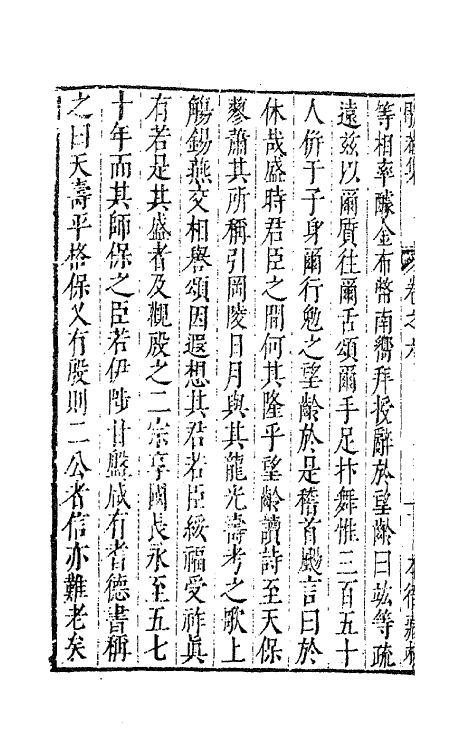 卷之九
等相率醵金布幣南嚮拜授辭於望齡曰竑等疏
遠茲以爾膺往爾舌頌爾手足抃舞惟三百五十
人併于子身爾行勉之望齡於是稽首颺言曰於
休哉盛時君臣之間何其隆乎望齡讀詩至天保
蓼蕭其所稱引岡陵日月與其龍光壽考之歌上
觴錫燕交相譽頌因遐想其君若臣綏福受祚眞
有若是其盛者及觀殷之二宗享國長永至五七
十年而其師保之臣若伊陟甘盤咸有耆德書稱
之曰天壽平格保乂有殷則二公者信亦難老矣